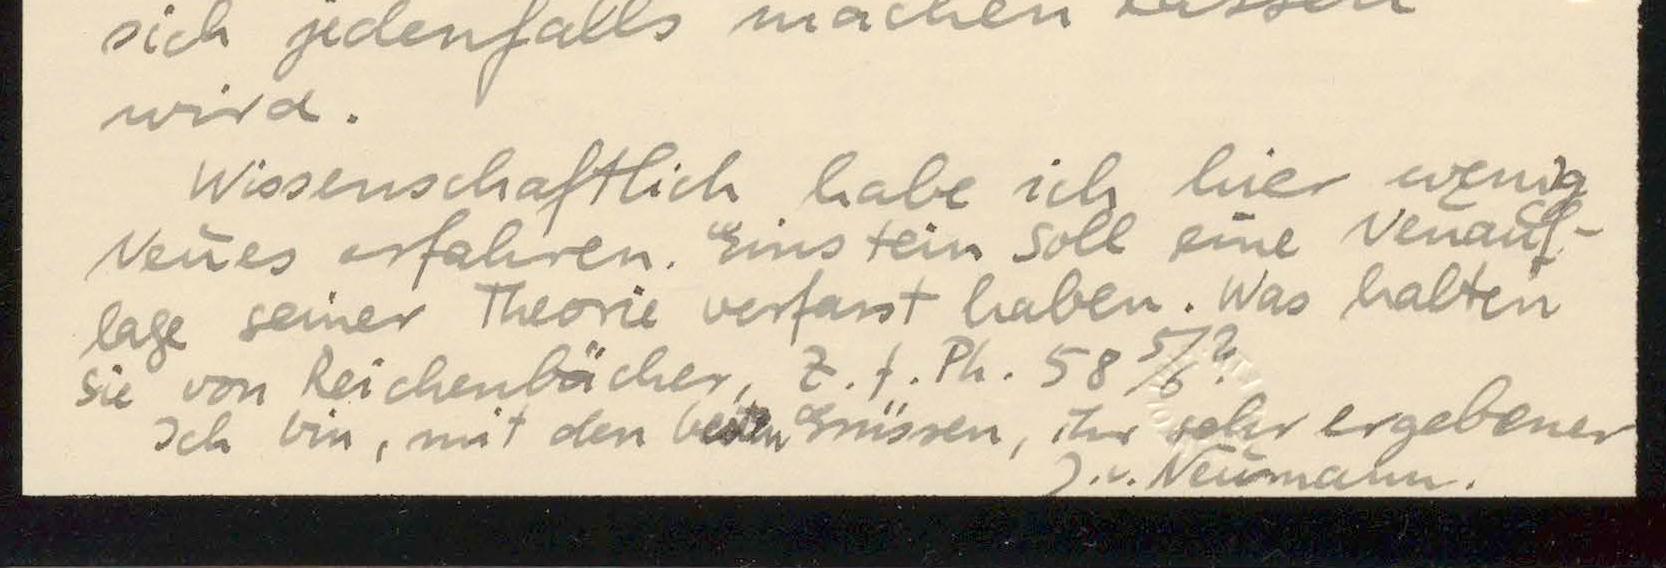 sich jedenfalls machen lassen
wird.
Wissenschaftlich habe ich hier wenig
Neues erfahren. Einstein soll eine Neuauf-
lage seiner Theorie verfasst haben. Was halten
Sie von Reichenbächer, Z. f. Ph. 58 5/6?
Ich bin, mit den besten Grüssen, Ihr sehr ergebener
J. v. Neumann.